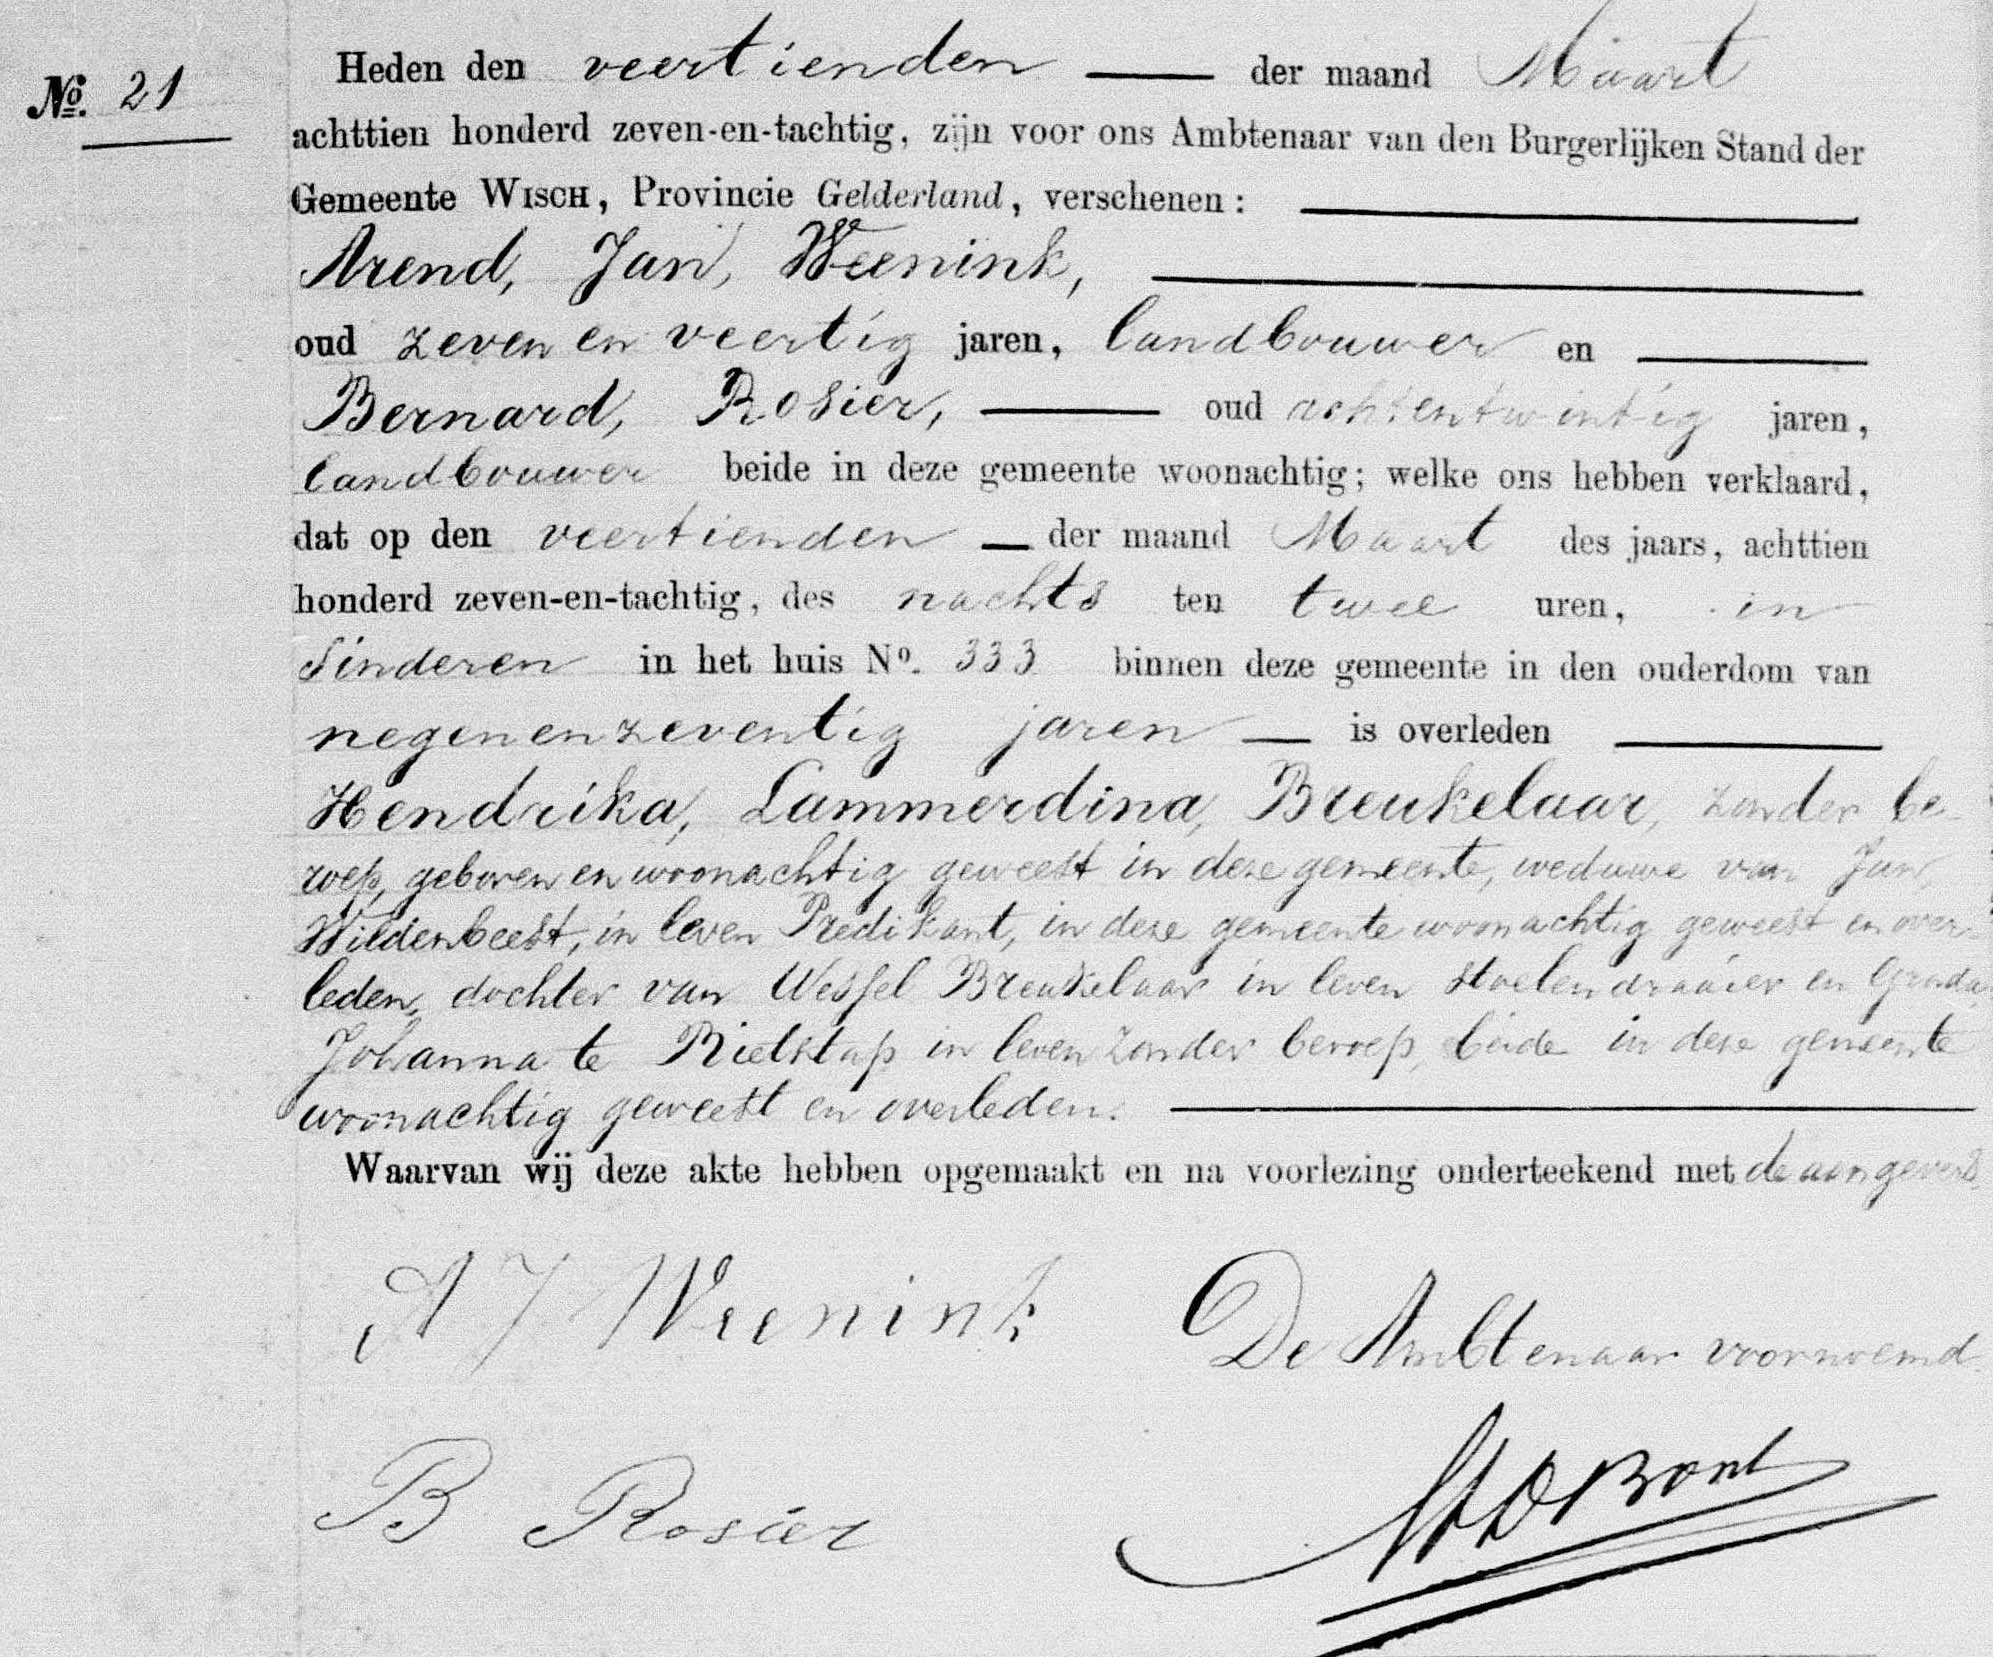 No. 21
Heden den veertienden — der maand Maart
achttien honderd zeven-en-tachtig, zijn voor ons Ambtenaar van den Burgerlijken Stand der
Gemeente WISCH, Provincie Gelderland, verschenen: —
Arend, Jan, Weenink, —
oud zeven en veertig jaren, landbouwer en —
Bernard, Rosier, — oud achtentwintig jaren,
landbouwer beide in deze gemeente woonachtig; welke ons hebben verklaard,
dat op den veertienden — der maand Maart des jaars, achttien
honderd zeven-en-tachtig, des nachts ten twee uren, in
Sinderen in het huis No. 333 binnen deze gemeente in den ouderdom van
negenenzeventig jaren — is overleden —
Hendrika, Lammerdina, Breukelaar, zonder be-
roep, geboren en woonachtig geweest in deze gemeente, weduwe van Jan,
Wildenbeest, in leven Predikant, in deze gemeente woonachtig geweest en over-
leden, dochter van Wessel Breukelaar in leven stoelendraaier en Grada
Johanna te Rietstap in leven zonder beroep, beide in deze gemeente
woonachtig geweest en overleden. —
Waarvan wij deze akte hebben opgemaakt en na voorlezing onderteekend met de aangevers.
A J Weenink
De Ambtenaar voornoemd.
B Rosier